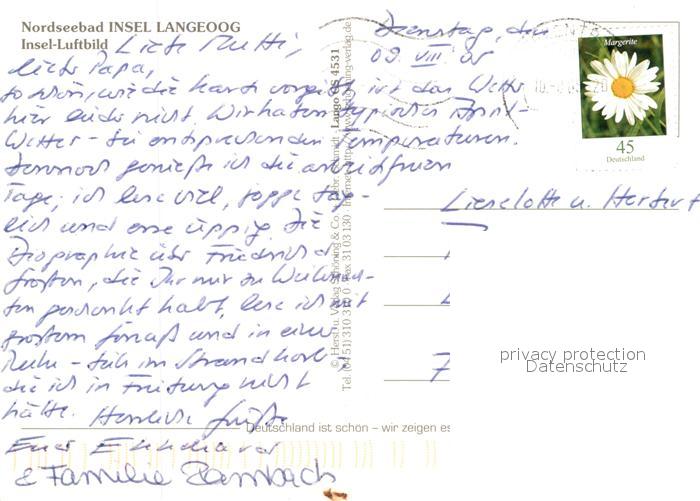 Nordseebad INSEL LANGEOOG
Insel-Luftbild
Dienstag, den
09. VIII. 05
Liebe Mutti,
lieber Papa,
so schön, wie die Karte vorgibt ist das Wetter
hier leider nicht. Wir haben typisches
Wetter - bei entsprechenden Temperaturen.
Dennoch genieße ich die arbeitsfreien
Tage; ich lese viel, jogge täg-
lich und esse üppig. Die
Biographie über Friedrich d.
Großen, die Ihr mir zu Weihnach-
ten geschenkt habt, lese ich mit
großem Genuß und in einer
Ruhe - tief im Strandkorb
die ich in Freiburg nicht
hätte. Herzliche Grüße
Euer
& Familie Rambach
© Herst. u. Verlag Schöning & Co. + Gebr. Schmidt, Lango GS 4531
Tel. (04 51) 310 310 Fax 31 03 130
Margerite
45
Deutschland
Lieselotte u. Herbert
privacy protection
Datenschutz
Deutschland ist schön – wir zeigen es